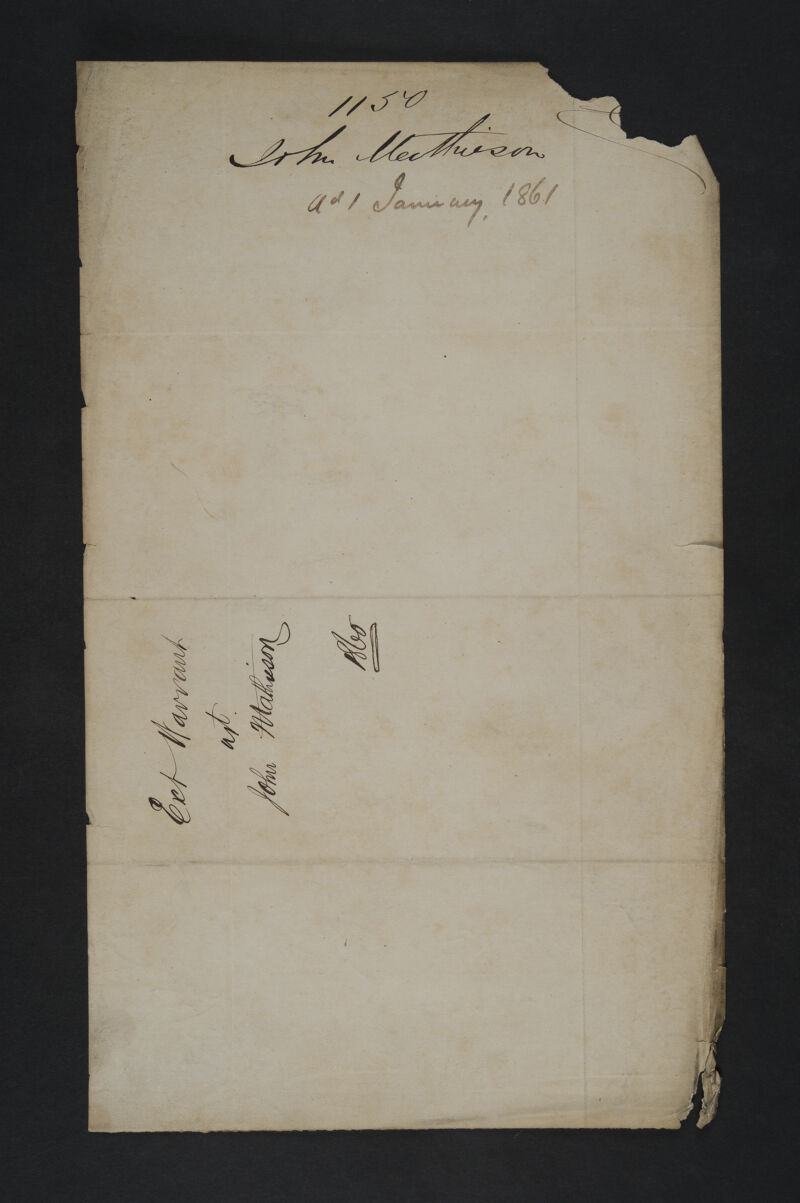 1150
John Mathieson
ad 1 January, 1861
Ext Warrant
agt.
John Mathieson
1860